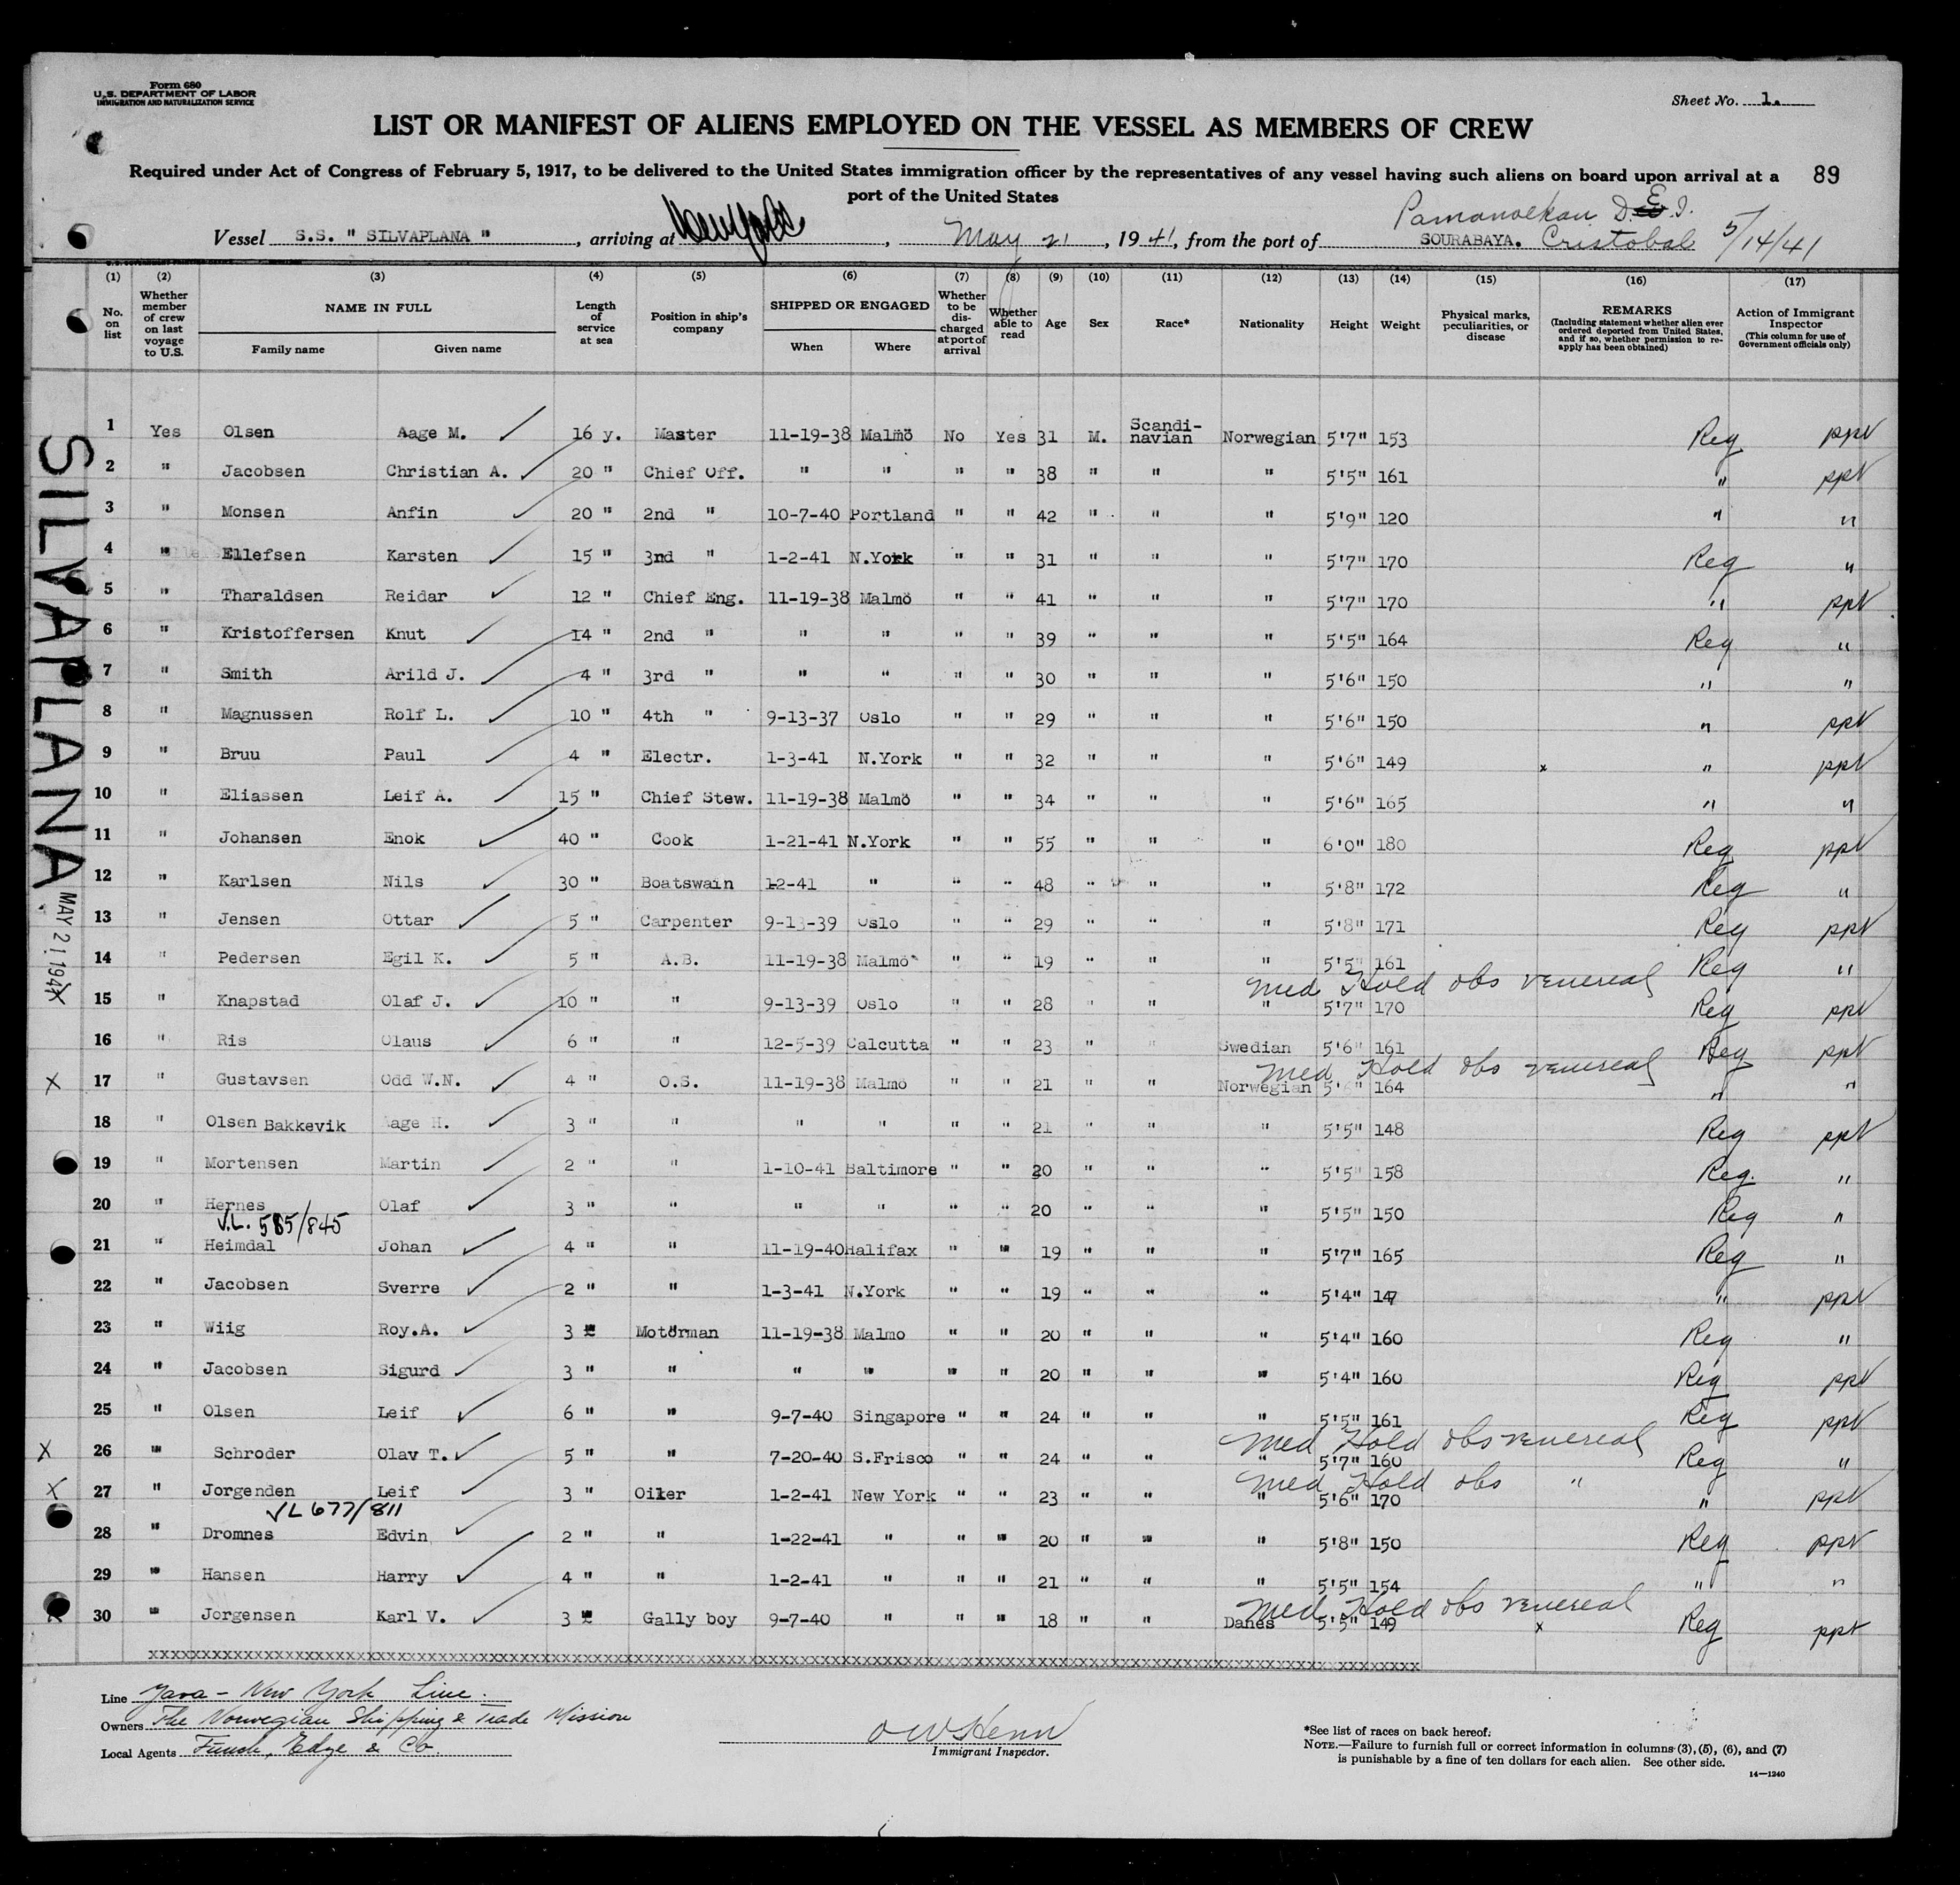 Form 680
U.S. DEPARTMENT OF LABOR
IMMIGRATION AND NATURALIZATION SERVICE
Sheet No. 1.
LIST OR MANIFEST OF ALIENS EMPLOYED ON THE VESSEL AS MEMBERS OF CREW
Required under Act of Congress of February 5, 1917, to be delivered to the United States immigration officer by the representatives of any vessel having such aliens on board upon arrival at a 89
port of the United States
Pamanoekan D.E.I.
Vessel S.S. " SILVAPLANA ", arriving at New York, May 21, 1941, from the port of SOURABAYA. Cristobal 5/14/41
(1) (2) (3) (4) (5) (6) (7) (8) (9) (10) (11) (12) (13) (14) (15) (16) (17)
No. on list
Whether member of crew on last voyage to U.S.
NAME IN FULL
Family name
Given name
Length of service at sea
Position in ship's company
SHIPPED OR ENGAGED
When
Where
Whether to be discharged at port of arrival
Whether able to read
Age
Sex
Race*
Nationality
Height
Weight
Physical marks, peculiarities, or disease
REMARKS
(Including statement whether alien ever ordered deported from United States, and if so, whether permission to reapply has been obtained)
Action of Immigrant Inspector
(This column for use of Government officials only)
SILVAPLANA
MAY 21 1941
1 Yes Olsen Aage M. 16 y. Master 11-19-38 Malmö No Yes 31 M. Scandinavian Norwegian 5'7" 153 Reg ppt
2 " Jacobsen Christian A. 20 " Chief Off. " " " " 38 " " " 5'5" 161 " ppt
3 " Monsen Anfin 20 " 2nd " 10-7-40 Portland " " 42 " " " 5'9" 120 " "
4 " Ellefsen Karsten 15 " 3nd " 1-2-41 N.York " " 31 " " " 5'7" 170 Reg "
5 " Tharaldsen Reidar 12 " Chief Eng. 11-19-38 Malmö " " 41 " " " 5'7" 170 " ppt
6 " Kristoffersen Knut 14 " 2nd " " " " " 39 " " " 5'5" 164 Reg "
7 " Smith Arild J. 4 " 3rd " " " " " 30 " " " 5'6" 150 " "
8 " Magnussen Rolf L. 10 " 4th " 9-13-37 Oslo " " 29 " " " 5'6" 150 " ppt
9 " Bruu Paul 4 " Electr. 1-3-41 N.York " " 32 " " " 5'6" 149 x " ppt
10 " Eliassen Leif A. 15 " Chief Stew. 11-19-38 Malmö " " 34 " " " 5'6" 165 " "
11 " Johansen Enok 40 " Cook 1-21-41 N.York " " 55 " " " 6'0" 180 Reg ppt
12 " Karlsen Nils 30 " Boatswain 12-41 " " " 48 " " " 5'8" 172 Reg "
13 " Jensen Ottar 5 " Carpenter 9-13-39 Oslo " " 29 " " " 5'8" 171 Reg ppt
14 " Pedersen Egil K. 5 " A.B. 11-19-38 Malmö " " 19 " " " 5'5" 161 Reg "
Med Hold obs venereal
15 " Knapstad Olaf J. 10 " " 9-13-39 Oslo " " 28 " " " 5'7" 170 Reg ppt
16 " Ris Olaus 6 " " 12-5-39 Calcutta " " 23 " " Swedian 5'6" 161 Reg ppt
Med Hold obs venereal
X 17 " Gustavsen Odd W.N. 4 " O.S. 11-19-38 Malmo " " 21 " " Norwegian 5'6" 164 " "
18 " Olsen Bakkevik Aage H. 3 " " " " " " 21 " " " 5'5" 148 Reg ppt
19 " Mortensen Martin 2 " " 1-10-41 Baltimore " " 20 " " " 5'5" 158 Reg. "
20 " Hernes Olaf 3 " " " " " " 20 " " " 5'5" 150 Reg "
V.L. 585/845
21 " Heimdal Johan 4 " " 11-19-40 Halifax " " 19 " " " 5'7" 165 Reg "
22 " Jacobsen Sverre 2 " " 1-3-41 N.York " " 19 " " " 5'4" 147 " ppt
23 " Wiig Roy.A. 3 " Motorman 11-19-38 Malmo " " 20 " " " 5'4" 160 Reg "
24 " Jacobsen Sigurd 3 " " " " " " 20 " " " 5'4" 160 Reg ppt
25 " Olsen Leif 6 " " 9-7-40 Singapore " " 24 " " " 5'5" 161 Reg ppt
Med Hold obs venereal
X 26 " Schroder Olav T. 5 " " 7-20-40 S.Frisco " " 24 " " " 5'7" 160 Reg "
Med Hold obs "
X 27 " Jorgenden Leif 3 " Oiler 1-2-41 New York " " 23 " " " 5'6" 170 " ppt
VL 677/811
28 " Dromnes Edvin 2 " " 1-22-41 " " " 20 " " " 5'8" 150 Reg ppt
29 " Hansen Harry 4 " " 1-2-41 " " " 21 " " " 5'5" 154 " "
Med Hold obs venereal
30 " Jorgensen Karl V. 3 " Gally boy 9-7-40 " " " 18 " " Danes 5'5" 149 x Reg ppt
Line Java - New York Line.
Owners The Norwegian Shipping & Trade Mission
Local Agents Funch, Edye & Co.
Immigrant Inspector.
*See list of races on back hereof.
NOTE.—Failure to furnish full or correct information in columns (3), (5), (6), and (7)
is punishable by a fine of ten dollars for each alien. See other side.
14—1240